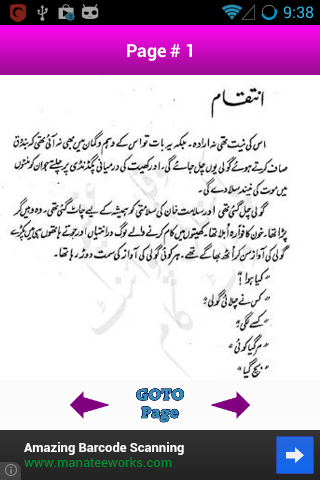 9:38
Page # 1
انتقام
اس کی نیت تھی نہ ارادہ۔ جبکہ یہ بات تو اس کے وہم وگمان میں بھی نہ آئی تھی کہ بندوق
صاف کرتے ہوئے گولی یوں چل جائے گی۔ اور کھیت کی درمیانی پگڈنڈی پر چلتے جوان کو منٹوں
میں موت کی نیند سلا دے گی۔
گولی چل گئی تھی اور سلامت خان کی سلامتی کو ہمیشہ کے لیے چاٹ گئی تھی۔ وہ وہیں گر
پڑا تھا۔ خون کا فوارہ اُبلا تھا۔ کھیتوں میں کام کرنے والے لوگ درانتیاں اور جوتے ہاتھوں ہی میں پکڑے
گولی کی آواز سن کر اُٹھ بھاگے تھے۔ ہر کوئی گولی کی آواز کی سمت دوڑ رہا تھا۔
"کیا ہوا؟"
"کس نے چلائی گولی؟"
"کسے لگی؟"
"مر گیا کوئی"
"بچ گیا"
GOTO
Page
Amazing Barcode Scanning
www.manateeworks.com